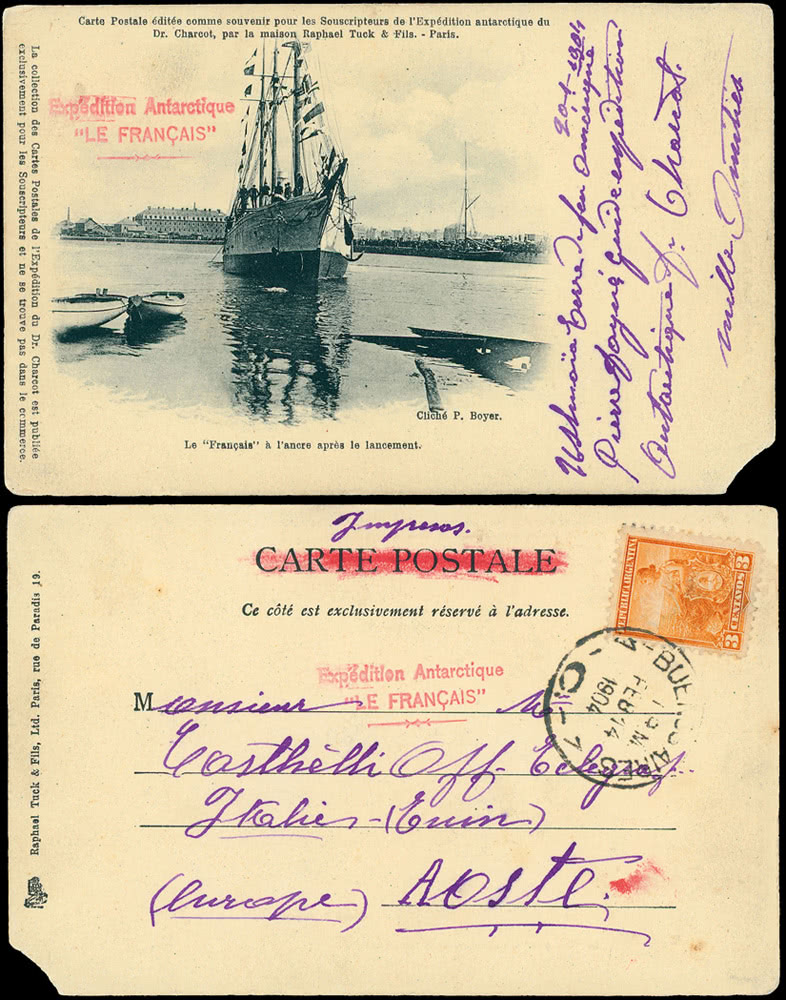 Carte Postale éditée comme souvenir pour les Souscripteurs de l'Expédition antarctique du
Dr. Charcot, par la maison Raphael Tuck & Fils. - Paris.
La collection des Cartes Postales de l'Expédition du Dr. Charcot est publiée
exclusivement pour les Souscripteurs et ne se trouve pas dans le commerce.
Expédition Antarctique
"LE FRANÇAIS"
Cliché P. Boyer.
Le "Français" à l'ancre après le lancement.
20-1-1904
Terre de feu
Pierre Dayné guide expédition
Antarctique Dr. Charcot.
mille Amitiés
Impresos.
CARTE POSTALE
Ce côté est exclusivement réservé à l'adresse.
REPUBLICA ARGENTINA
3 CENTAVOS 3
BUENOS AIRES
FEB 14
1904
Expédition Antarctique
"LE FRANÇAIS"
Monsieur
Off
Italie - (Turin)
(Europe) Aoste.
Raphael Tuck & Fils, Ltd. Paris, rue de Paradis 19.